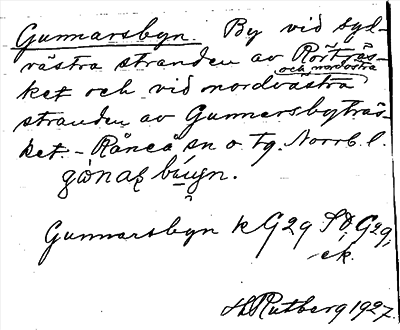 Gunnarsbyn. By vid syd-
västra stranden av Rörträs-
och nordöstra
ket och vid nordvästra
stranden av Gunnarsbyträs-
ket. - Råneå sn o. tg. Norrb. l.
Gunnarsbyn k G29 SO, G29,
ek.
H. Rutberg 1927.